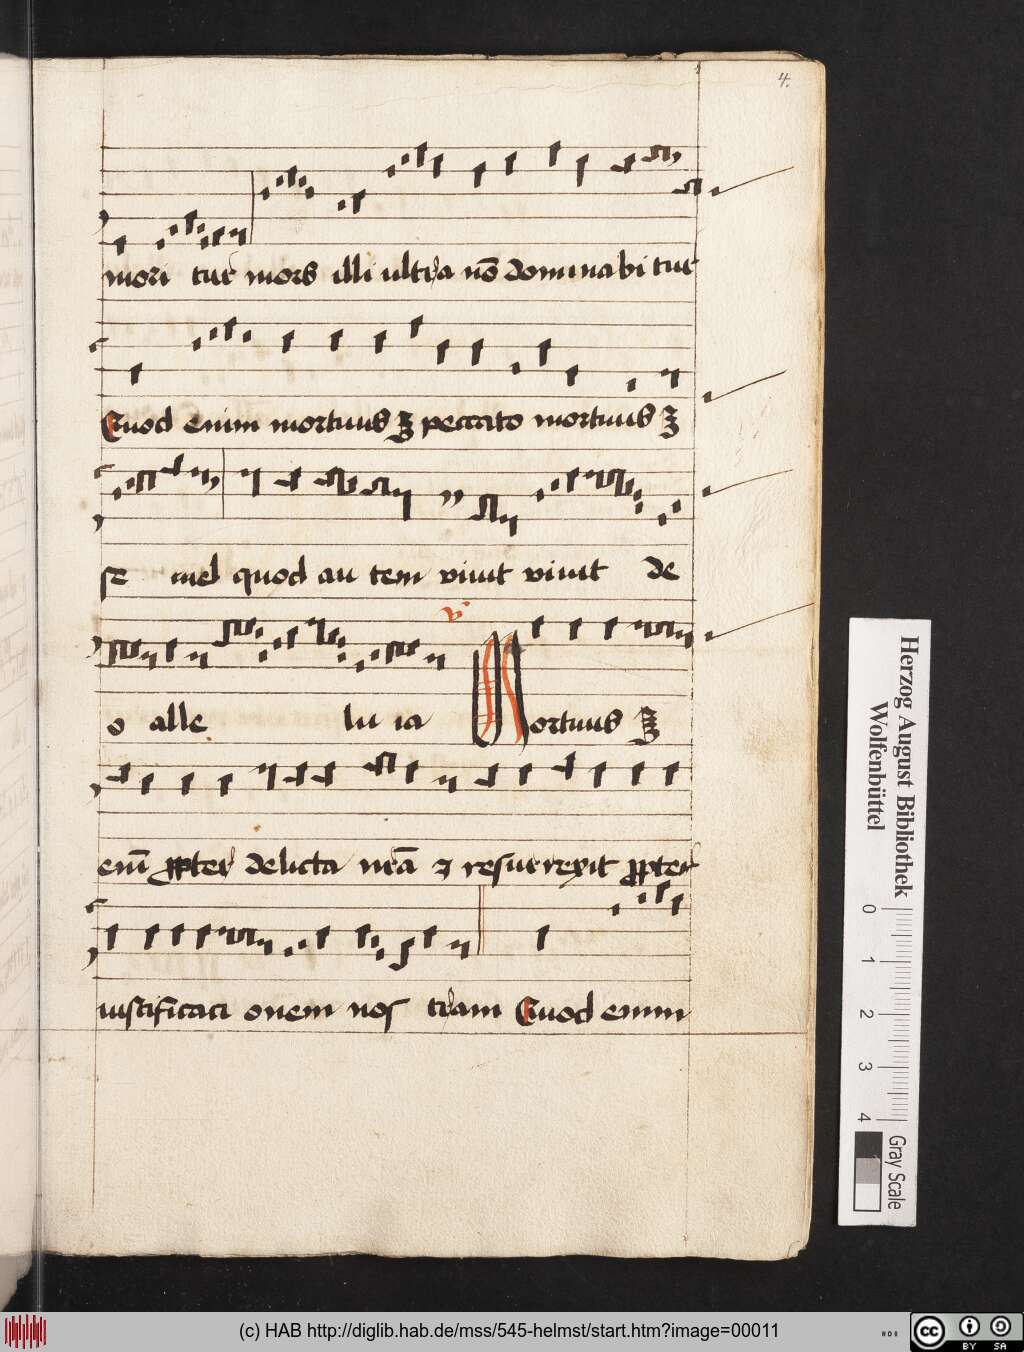 4.
mori tur mors illi ultra nō dominabitur
Quod enim mortuus ē peccato mortuus ē
se mel quod au tem vivit vivit de
o alle lu ia Mortuus ē
eni̅ ꝓpter delicta nr̄a ⁊ resurrexit ꝓpter
iustificaci onem nos tram Quod enim
Herzog August Bibliothek
Wolfenbüttel
0 1 2 3 4
Gray Scale
(c) HAB http://diglib.hab.de/mss/545-helmst/start.htm?image=00011
cc BY SA